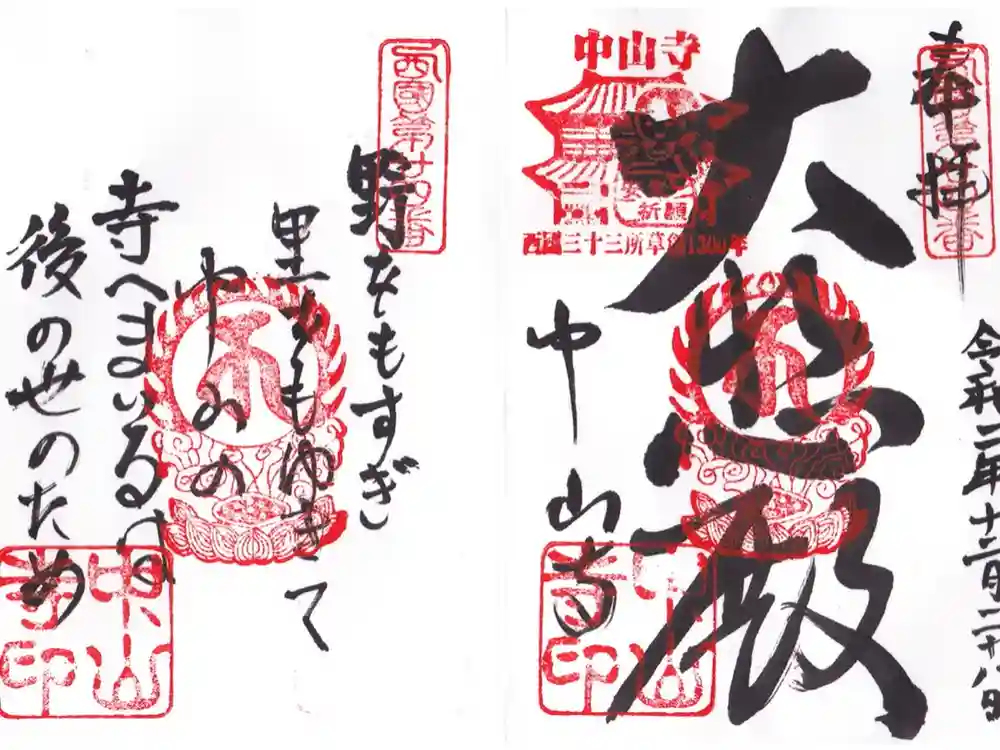 奉拝
西國第廿四番
令和二年十二月二十八日
大悲殿
中山寺
西国三十三所草創1300年
祈願
中山寺
中山寺印
西國第廿四番
野をもすぎ
里をもゆきて
中山の
寺へまいるは
後のせのため
中山寺印